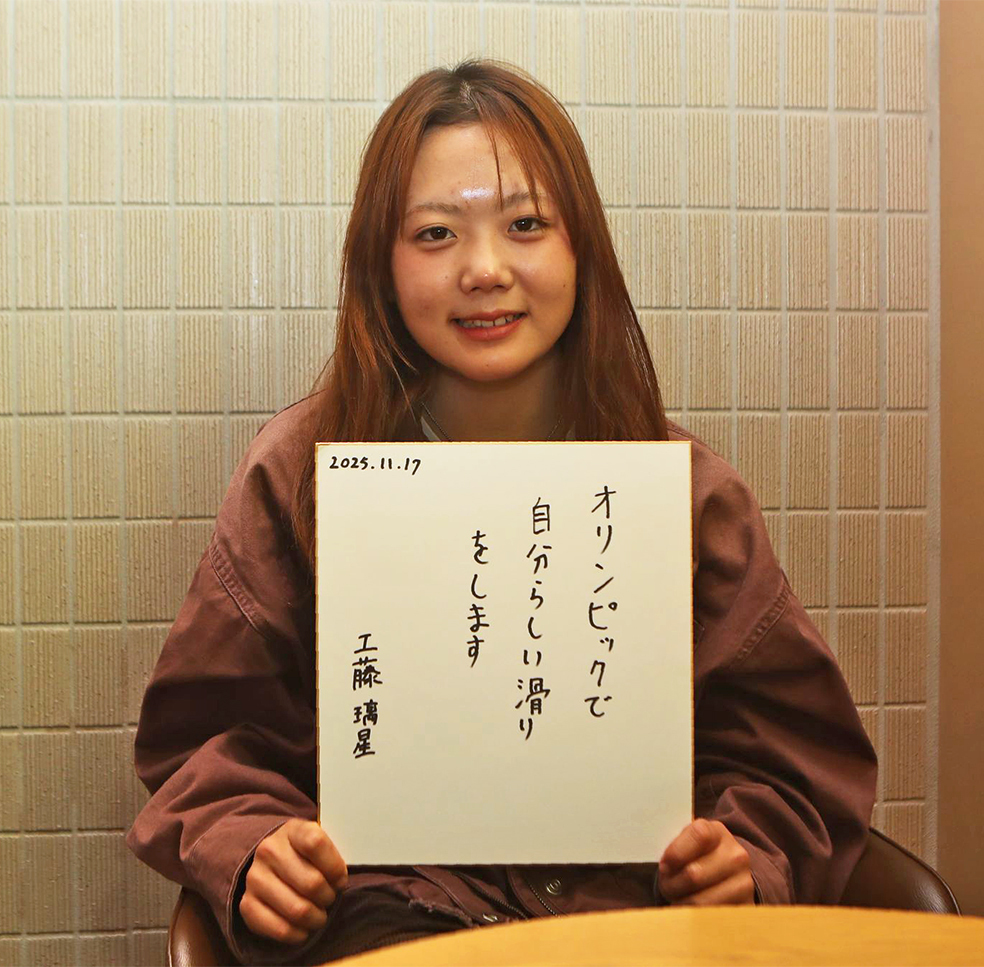 2025.11.17
オリンピックで
自分らしい滑り
をします
工藤 璃星